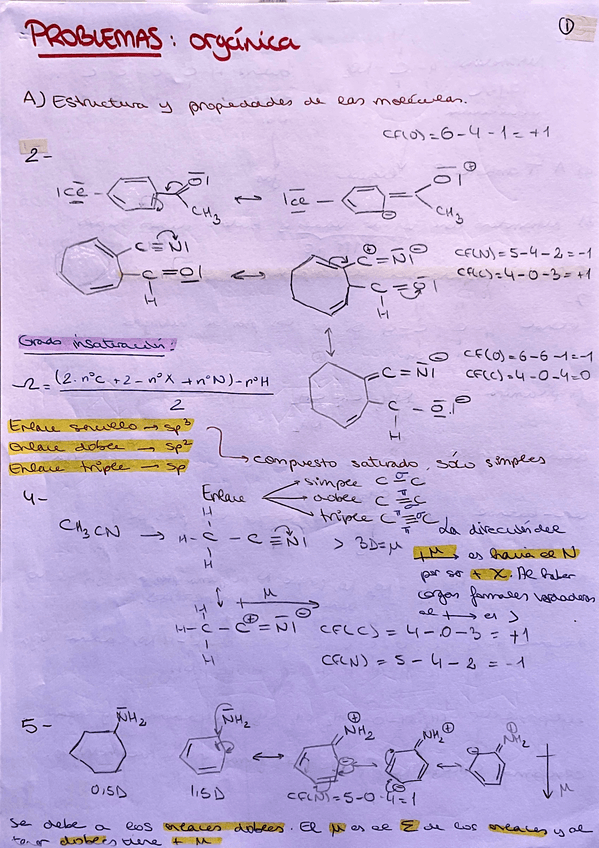 ①
PROBLEMAS: orgánica
A) Estructura y propiedades de las moléculas.
CF(O)=6-4-1=+1
2-
CH3
CH3
C≡N|
C=O|
H
CF(N)=5-4-2=-1
CF(C)=4-0-3=+1
Grado insaturación:
CF(O)=6-6-1=-1
CF(C)=4-0-4=0
Ω=(2·nºC+2-nºX+nºN)-nºH
2
Enlace sencillo → sp3
Enlace doble → sp2
Enlace triple → sp
compuesto saturado, sólo simples
4-
Enlace
simple C C
doble C C
triple C C
CH3CN → H-C-C≡N| > 3D=μ
La dirección del
μ es hacia el N
por ser + X. Al haber
cargas formales verdaderas
el → es >
μ
H-C-C⊕=N|⊖
CF(C)=4-0-3=+1
CF(N)=5-4-2=-1
5-
NH2
NH2
NH2
NH2
NH2
0,5D
1,5D
CF(N)=5-0-4=1
μ
Se debe a los enlaces dobles. El μ es el Σ de los enlaces y al
tener dobles tiene + μ